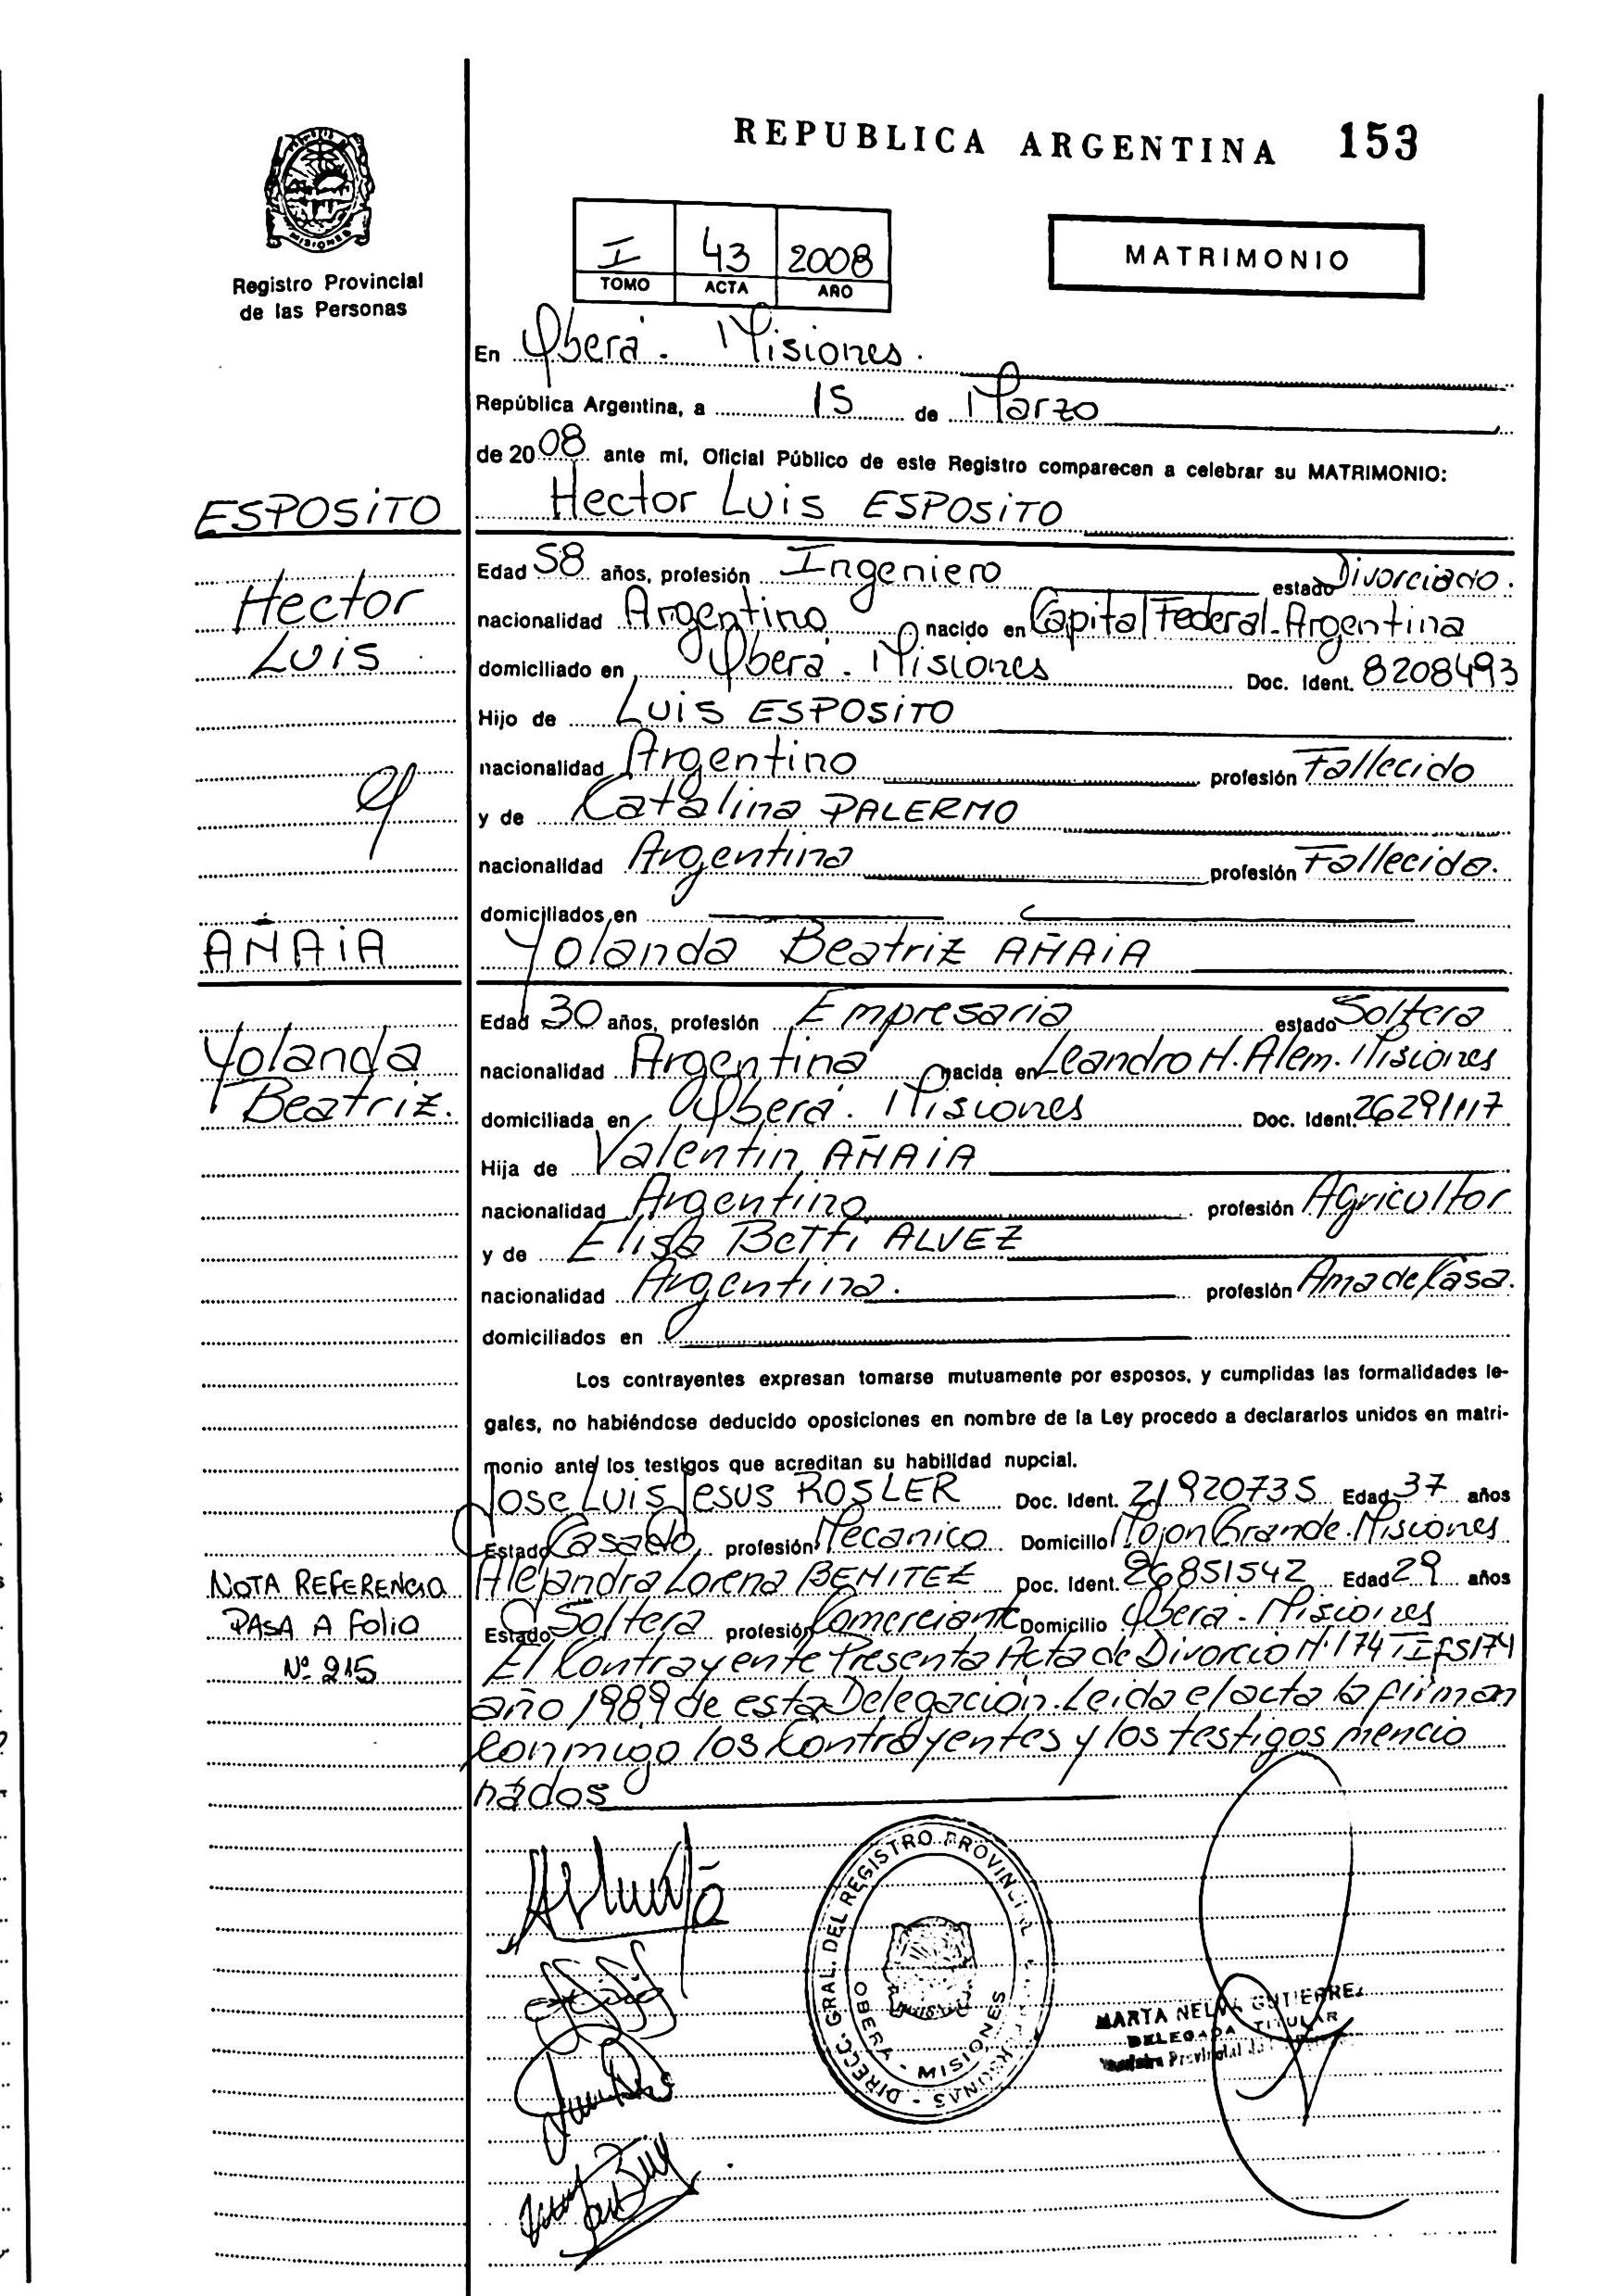 REPUBLICA ARGENTINA 153
MISIONES
Registro Provincial
de las Personas
I 43 2008
TOMO ACTA AÑO
MATRIMONIO
En Oberá - Misiones.
República Argentina, a 15 de Marzo
de 2008 ante mí, Oficial Público de este Registro comparecen a celebrar su MATRIMONIO:
ESPOSITO
Hector Luis ESPOSITO
Hector
Luis
Edad 58 años, profesión Ingeniero estado Divorciado.
nacionalidad Argentino nacido en Capital Federal - Argentina
domiciliado en Oberá - Misiones Doc. Ident. 8208493
Hijo de Luis ESPOSITO
nacionalidad Argentino profesión Fallecido
y
y de Catalina PALERMO
nacionalidad Argentina profesión Fallecida.
domiciliados en
AÑAIA
Yolanda Beatriz AÑAIA
Yolanda
Beatriz.
Edad 30 años, profesión Empresaria estado Soltera
nacionalidad Argentina nacida en Leandro N. Alem. Misiones
domiciliada en Oberá - Misiones Doc. Ident. 26291117
Hija de Valentin AÑAIA
nacionalidad Argentino profesión Agricultor
y de Elisa Betti ALVEZ
nacionalidad Argentina. profesión Ama de Casa.
domiciliados en
Los contrayentes expresan tomarse mutuamente por esposos, y cumplidas las formalidades le-
gales, no habiéndose deducido oposiciones en nombre de la Ley procedo a declararlos unidos en matri-
monio ante los testigos que acreditan su habilidad nupcial.
Jose Luis Jesus ROSLER Doc. Ident. 21920735 Edad 37 años
Estado Casado profesión Mecanico Domicilio Mojon Grande - Misiones
Alejandra Lorena BENITEZ Doc. Ident. 26851542 Edad 29 años
Estado Soltera profesión Comerciante Domicilio Oberá - Misiones
NOTA REFERENCIA
PASA A Folio
Nº 215
El Contrayente Presenta Acta de Divorcio N° 174 T I FS 174
año 1989 de esta Delegación. Leida el acta la firman
Conmigo los Contrayentes y los testigos mencio
nados
DIRECC. GRAL. DEL REGISTRO PROVINCIAL
OBERA - MISIONES
MARTA NELVA GUTIERREZ
DELEGADA TITULAR